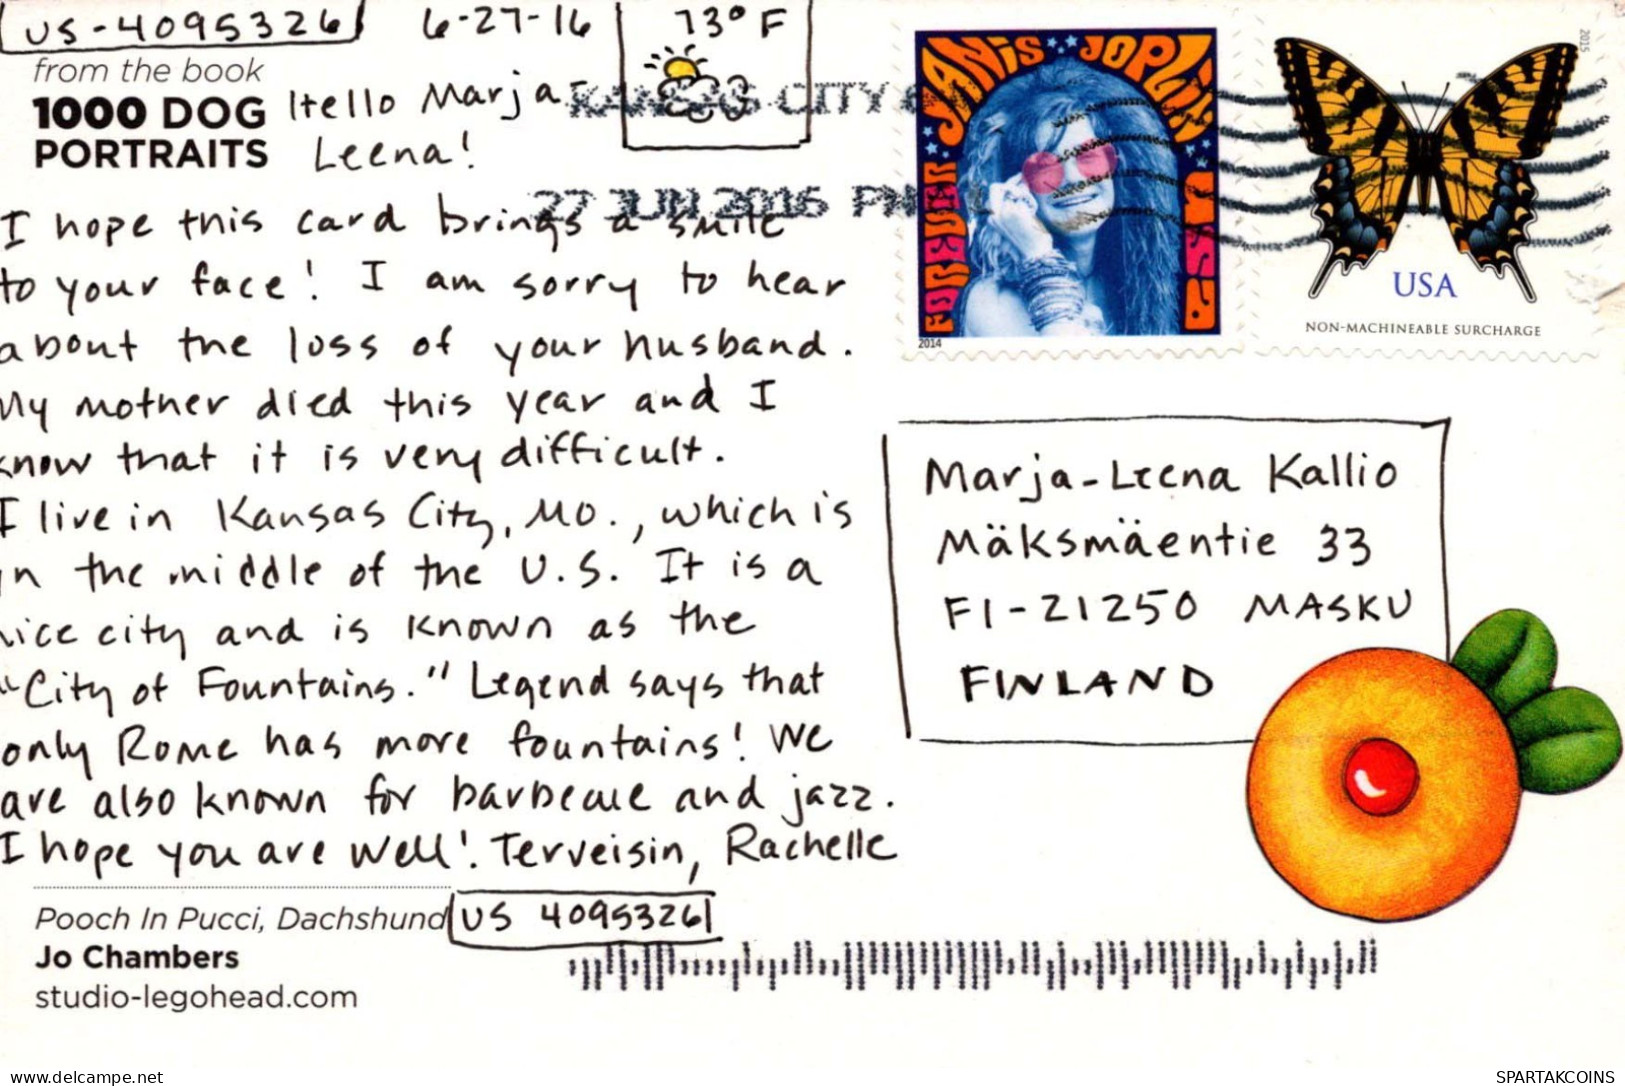 US-4095326
6-27-16
73° F
from the book
1000 DOG
PORTRAITS
Hello Marja
Leena!
KANSAS CITY
27 JUN 2016 PM
I hope this card brings a smile
to your face! I am sorry to hear
about the loss of your husband.
My mother died this year and I
know that it is very difficult.
I live in Kansas City, MO., which is
in the middle of the U.S. It is a
nice city and is known as the
"City of Fountains." Legend says that
only Rome has more fountains! We
are also known for barbecue and jazz.
I hope you are well! Terveisin, Rachelle
Pooch In Pucci, Dachshund
US 4095326
Jo Chambers
studio-legohead.com
JANIS JOPLIN
FOREVER
USA
2014
2015
USA
NON-MACHINEABLE SURCHARGE
Marja-Leena Kallio
Mäksmäentie 33
FI-21250 MASKU
FINLAND
https://www.delcampe.net
SPARTAKCOINS